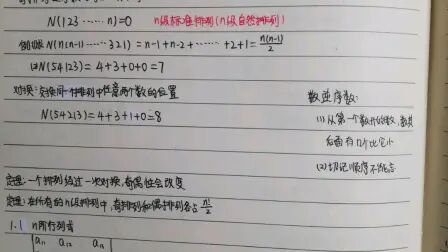 N(123……n)=0 n级标准排列(n级自然排列)
N(n(n-1)……321)=n-1+n-2+……+2+1=n(n-1)/2
N(54123)=4+3+0+0=7
对换:交换同一排列中任意两个数的位置
N(54213)=4+3+1+0=8
数逆序数:
(1)从第一个数开始数,数其
后面有几个比它小
(2)切记顺序不能
定理:一个排列经过一次对换,奇偶性会改变
定理:在所有的n级排列中,奇排列和偶排列各占n!/2
1.1 n阶行列式
a₁₁ a₁₂ a₁₃